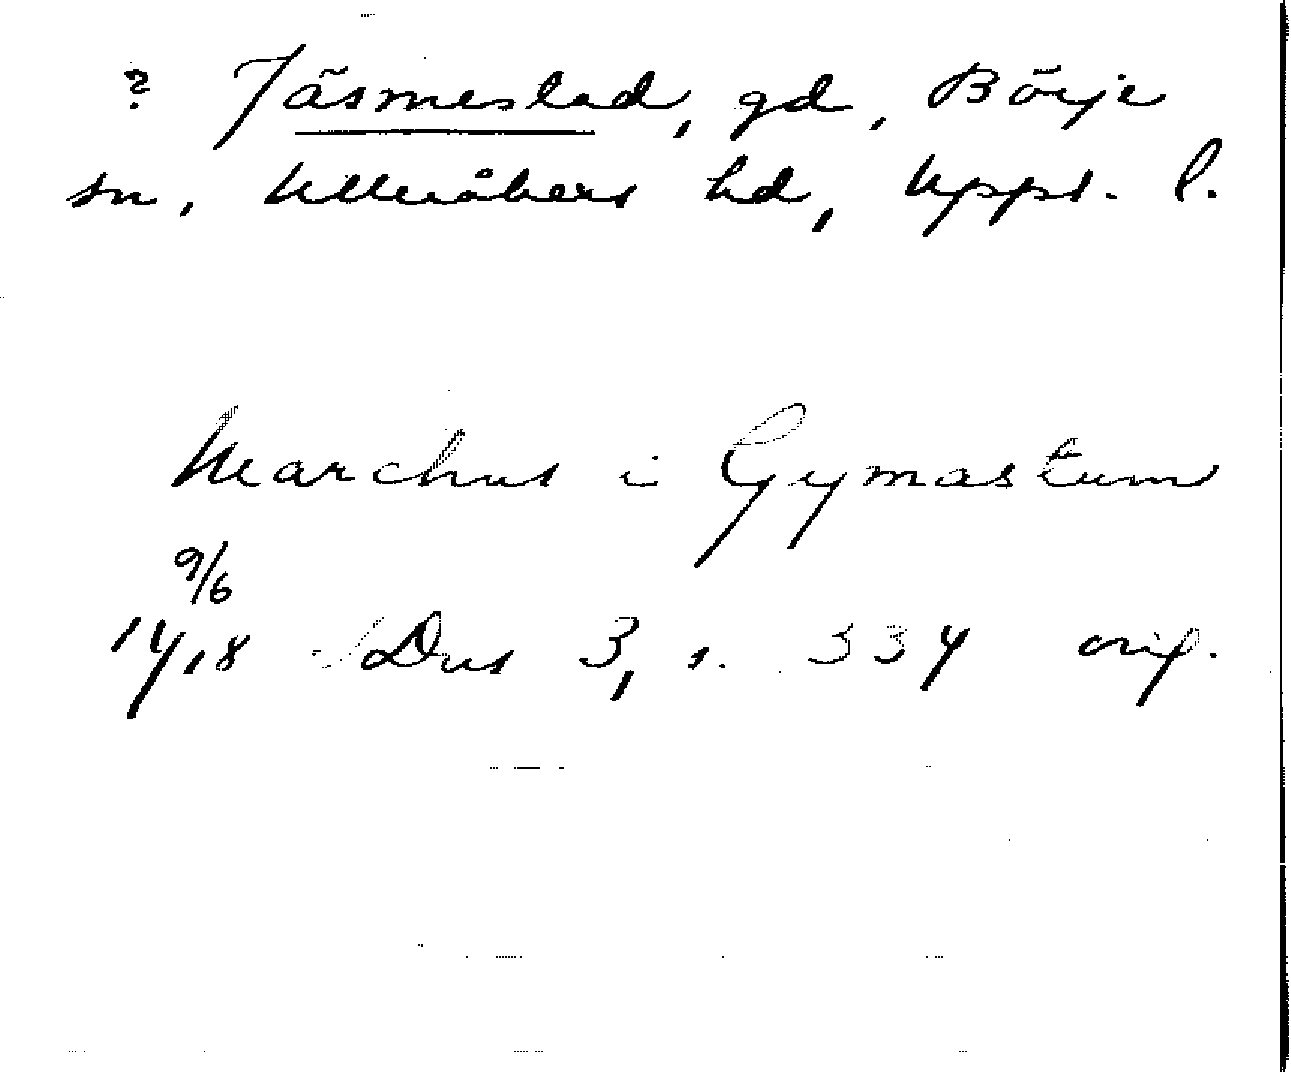 ? Jäsmestad, gd, Börje
sn, Ulleråkers hd, Upps. l.
Marchus i Gymastum
9/6
1418 Dus 3, s. 334 orig.